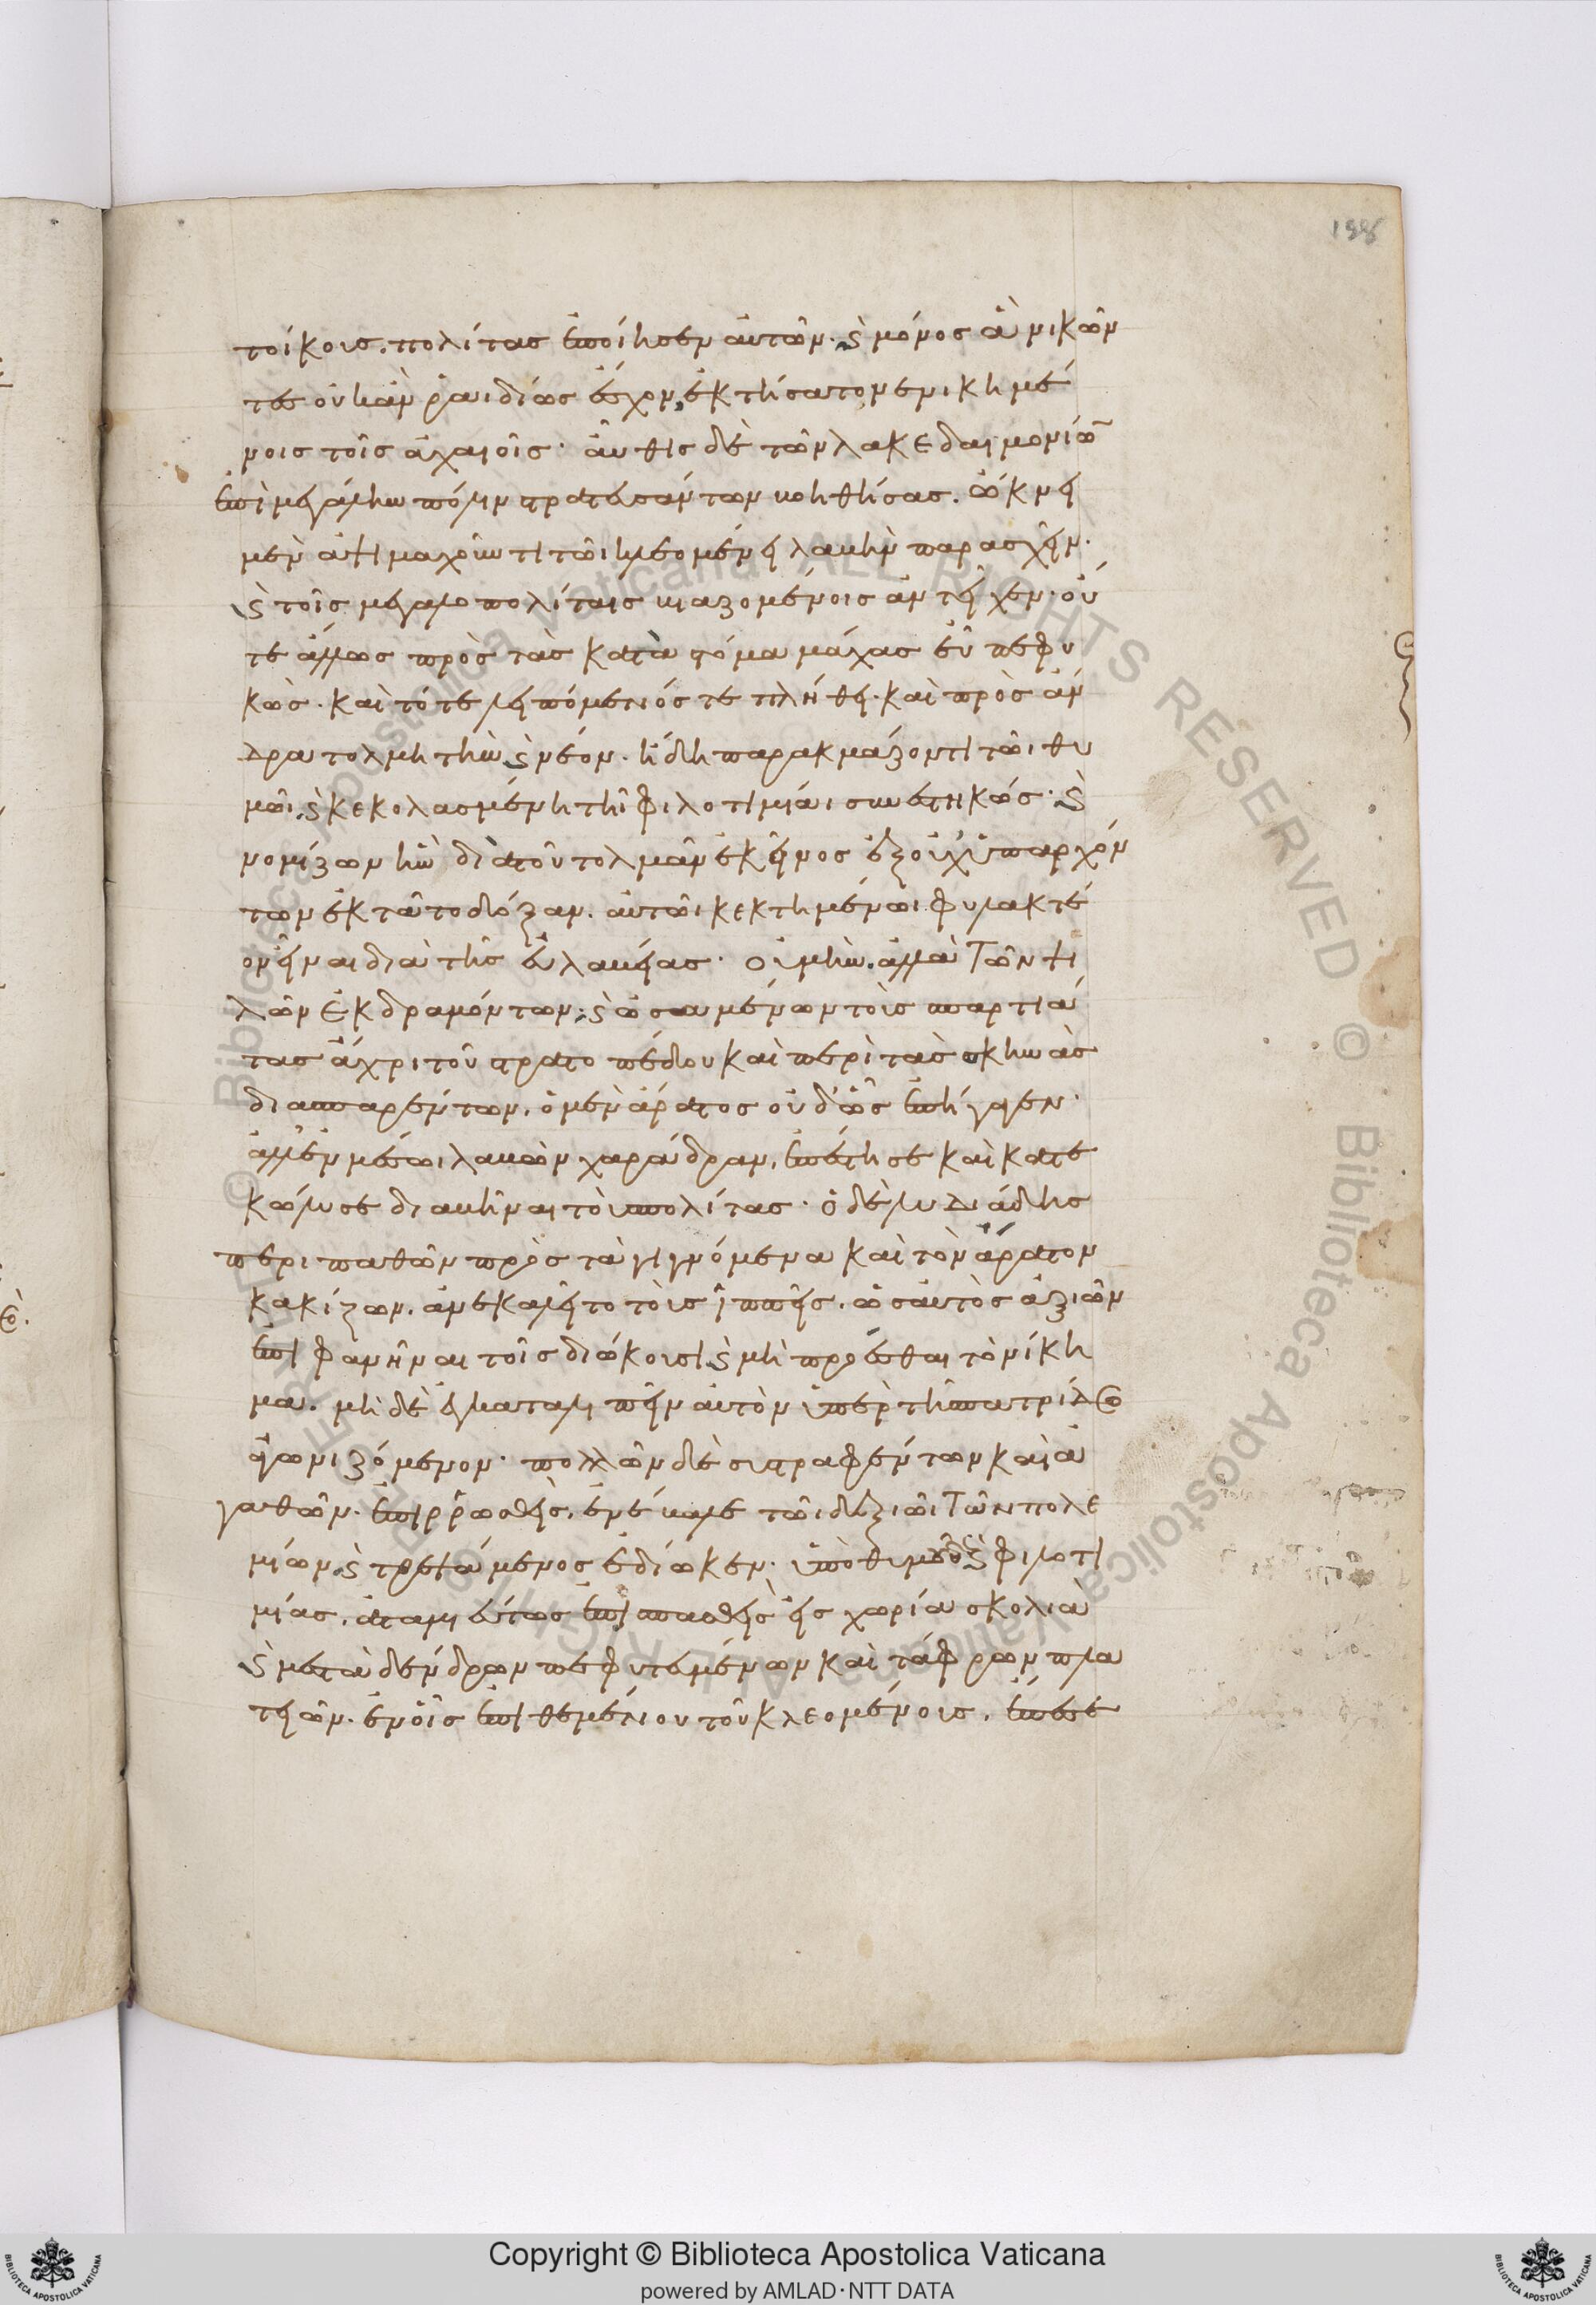 τοίκους. πολίτας ἐποίησεν αὐτῶν. καὶ μόνος ἃ νικῶν
τες οὐκ ἂν ῥαιδίως ἔσχον, ἐκτήσατο νενικημέ
νοις τοῖς ἀχαιοῖς· αὖθις δὲ τῶν λακεδαιμονίω̅
ἐπὶ μεγάλην πόλιν στρατευσάντων βοηθήσας. ὤκνει
μὲν ἁψιμαχοῦντι τῶι κλεομένει λαβὴν παρασχεῖν.
καὶ τοῖς μεγαλοπολίταις βιαζομένοις ἀντεῖχεν. οὔ
τε ἄλλως πρὸς τὰς κατὰ στόμα μάχας εὖ πεφυ
κὼς. καὶ τότε λειπόμενός τε πλήθει. καὶ πρὸς ἄν
δρα τολμητὴν καὶ νέον. ἤδη παρακμάζοντι τῶι θυ
μῶι. καὶ κεκολασμένη τῆ φιλοτιμίαι συνεστηκώς· καὶ
νομίζων ἣν διὰ τοῦ τολμᾶν ἐκεῖνος ἐξ οὐχ ὑπαρχόν
των ἐκτᾶτο δόξαν. αὐτῶι κεκτημένωι φυλακτέ
ον εἶναι διὰ τῆς εὐλαβείας· οὐ μὴν. ἀλλὰ τῶν ψι
λῶν ἐκδραμόντων· καὶ ὠσαμένων τοὺς σπαρτιά
τας ἄχρι τοῦ στρατοπέδου καὶ περὶ τὰς σκηνὰς
διασπαρέντων. ὁ μὲν ἄρατος οὐδ' ὣς ἐπήγαγεν·
ἀλλ' ἐν μέσωι λαβὼν χαράδραν, ἐπέστησε καὶ κατε
κώλυσε διαβῆναι τοὺς ὁπλίτας· ὁ δὲ λυδιάδης
περιπαθῶν πρὸς τὰ γιγνόμενα καὶ τὸν ἄρατον
κακίζων. ἀνεκαλεῖτο τοὺς ἱππεῖς. ὡς αὐτὸς ἀξιῶν
ἐπιφανῆναι τοῖς διώκουσι. καὶ μὴ προέσθαι τὸ νίκη
μα. μὴ δὲ ἐγκαταλιπεῖν αὐτὸν ὑπὲρ τῆς πατρίδος
ἀγωνιζόμενον· πολλῶν δὲ συστραφέντων καὶ ἀ
γαθῶν. ἐπιρρωσθεὶς. ἐνέβαλε τῶι δεξιῶι τῶν πολε
μίων. καὶ τρεψάμενος ἐδίωκεν. ὑπὸ θυμοῦ καὶ φιλοτι
μίας. ἀταμιεύτως ἐπισπασθεὶς εἰς χωρία σκολιὰ
καὶ μεστὰ δένδρων πεφυτευμένων καὶ τάφρων πλα
τειῶν. ἐν οἷς ἐπιθεμένου τοῦ κλεομένους. ἔπεσε